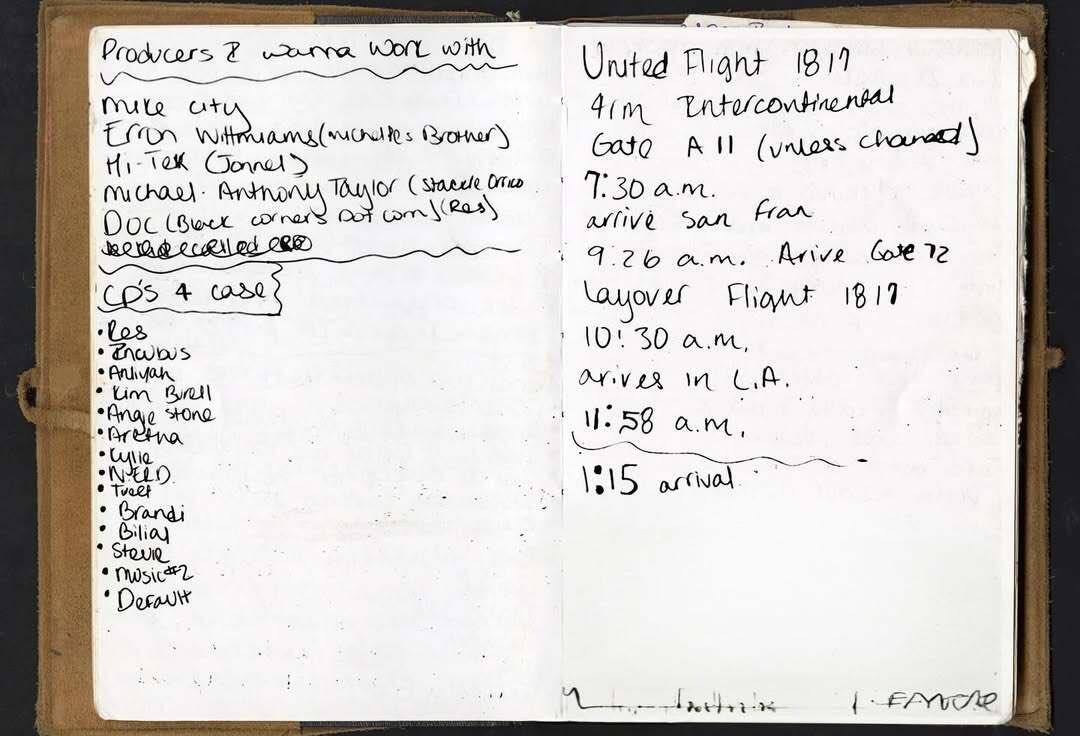 Producers I wanna work with
mike city
Erron Wittmiams (michelles Brother)
Hi-Tek (Jonnel)
michael. Anthony Taylor (Stacie Orrico
DOC (Black corners Dot com) (Res)
CD's 4 case
• Res
• Incubus
• Anliyah
• Kim Burell
• Angie Stone
• Aretha
• Kylie
• N.E.R.D.
• Tweet
• Brandi
• Bilial
• Stevie
• music #2
• Default
United Flight 1817
Intercontinental
Gate A11 (unless changed)
7:30 a.m.
arrive San Fran
9:26 a.m. Arive Gate 72
Layover Flight 1817
10:30 a.m.
arives in L.A.
11:58 a.m.
1:15 arrival